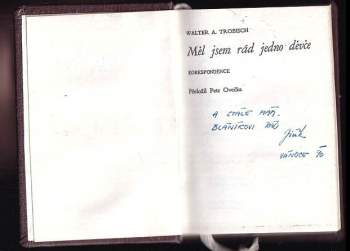 WALTER A. TROBISCH
Měl jsem rád jedno děvče
KORESPONDENCE
Přeložil Petr Ovečka
A STÁLE MÁM.
VÁNOCE